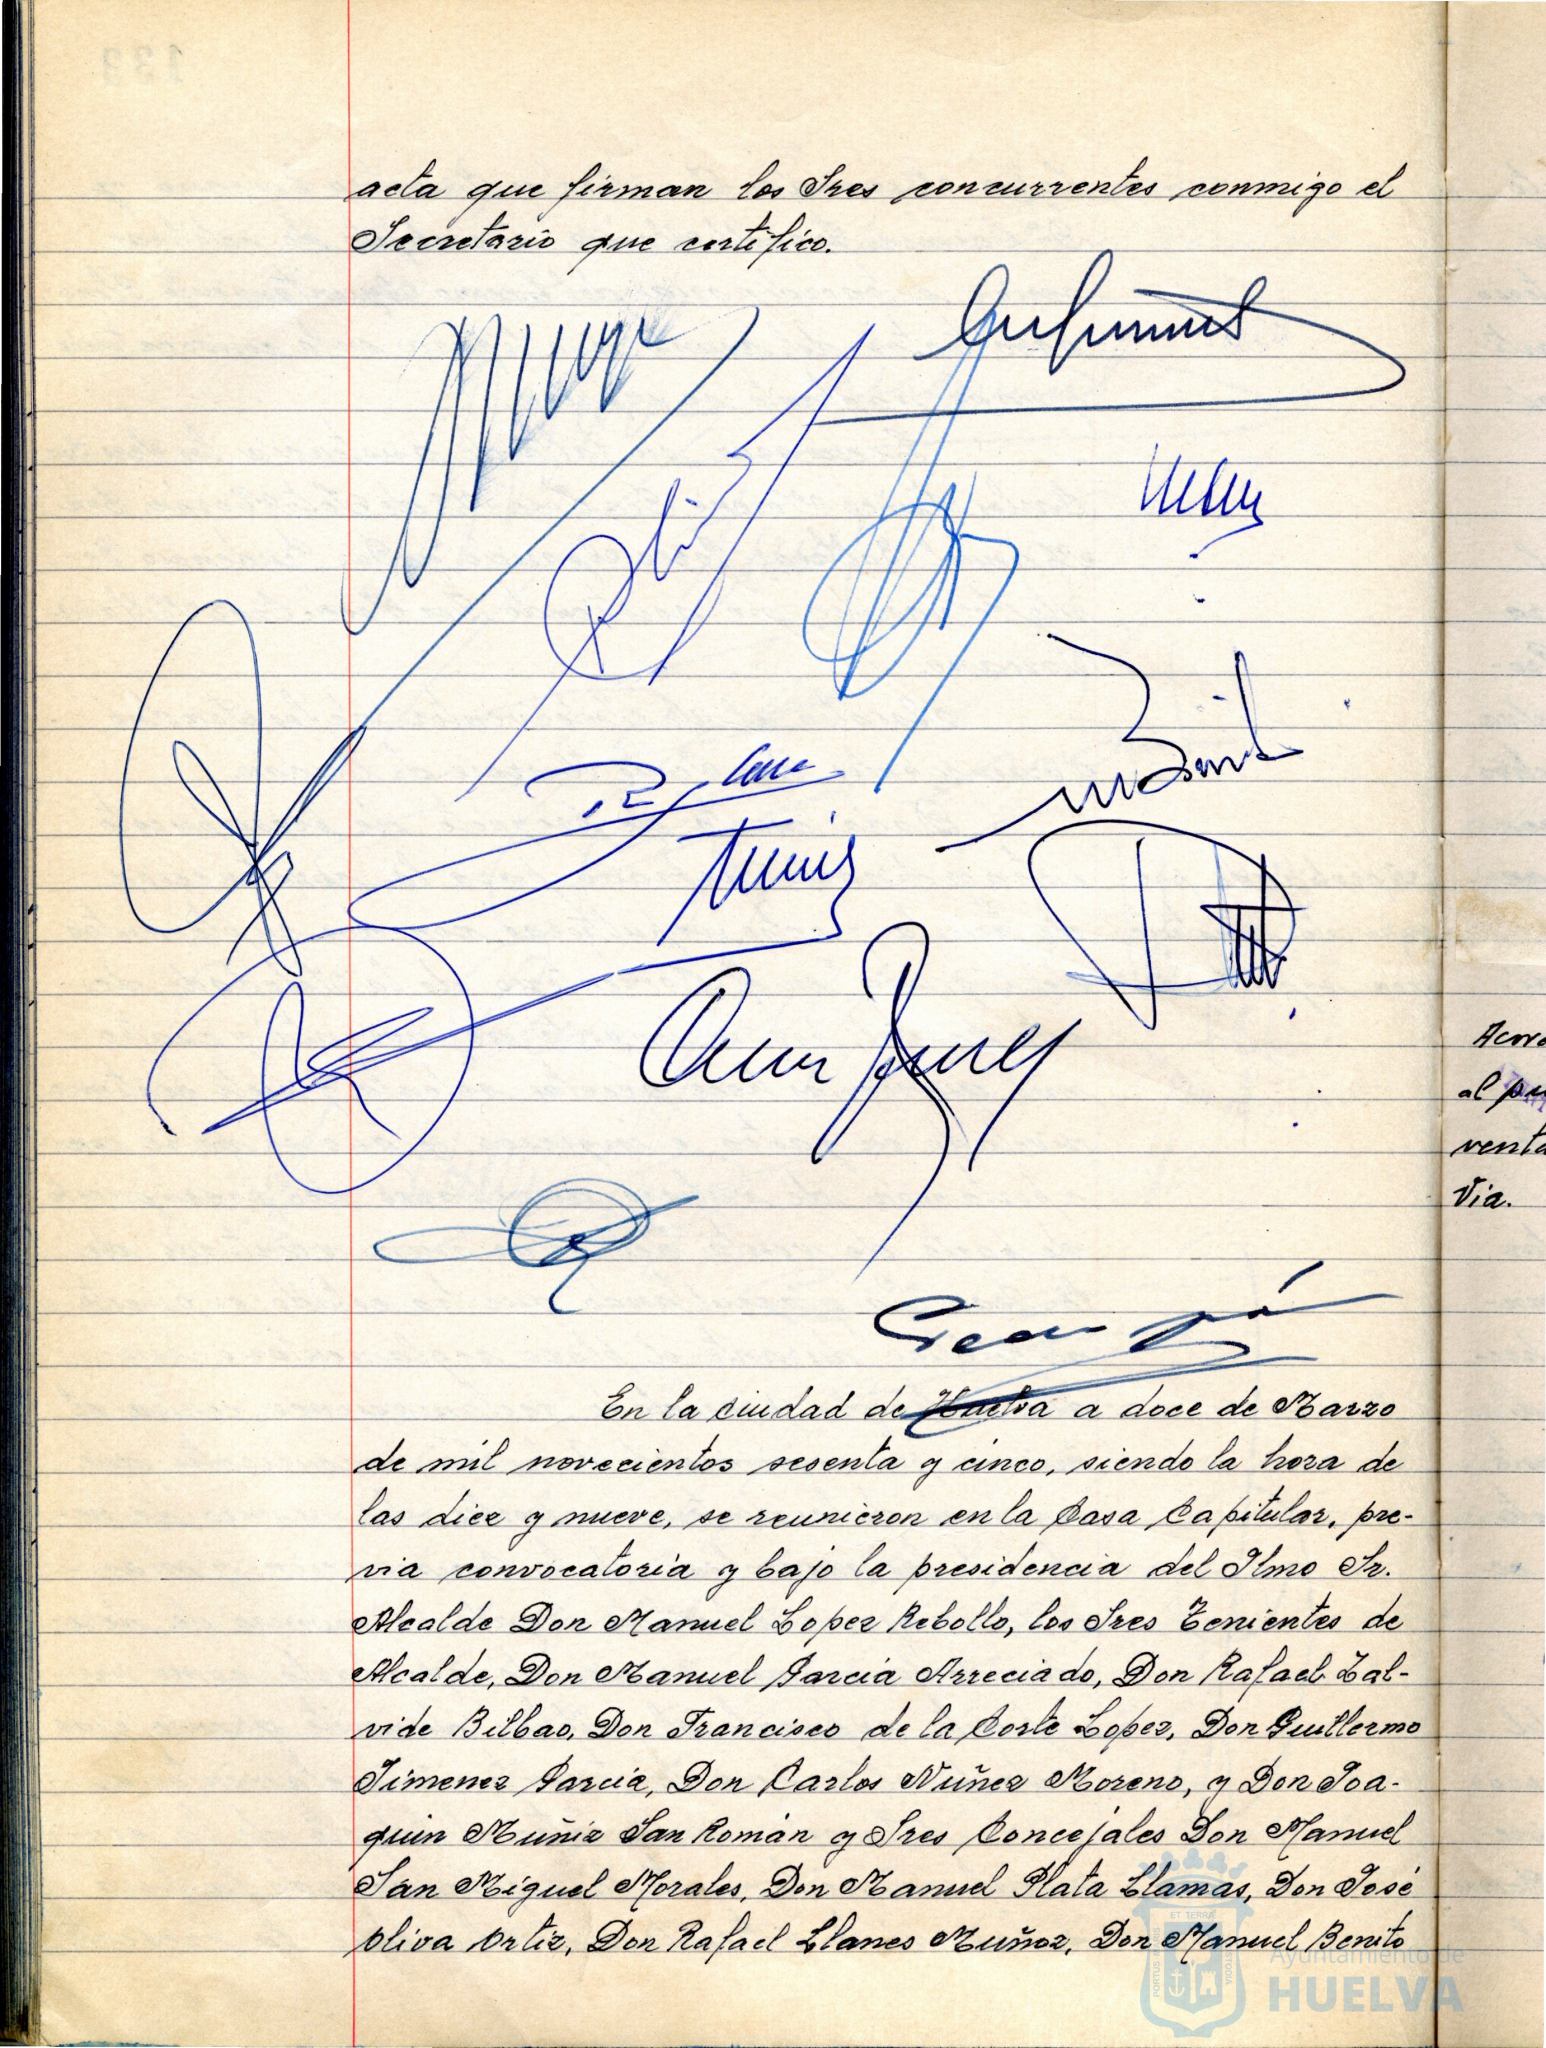 acta que firman los Sres concurrentes conmigo el
Secretario que certifico.
Acor
al pu
venta
Via.
En la ciudad de Huelva a doce de Marzo
de mil novecientos sesenta y cinco, siendo la hora de
las diez y nueve, se reunieron en la Casa Capitular, pre-
via convocatoria y bajo la presidencia del Ilmo Sr.
Alcalde Don Manuel Lopez Rebollo, los Sres Tenientes de
Alcalde, Don Manuel Garcia Arreciado, Don Rafael Zal-
vide Bilbao, Don Francisco de la Corte Lopez, Don Guillermo
Jimenez Garcia, Don Carlos Nuñez Moreno, y Don Joa-
quin Muñiz San Roman y Sres Concejales Don Manuel
San Miguel Morales, Don Manuel Plata Llamas, Don José
Oliva Ortiz, Don Rafael Llanes Muñoz, Don Manuel Benito
Ayuntamiento de
HUELVA